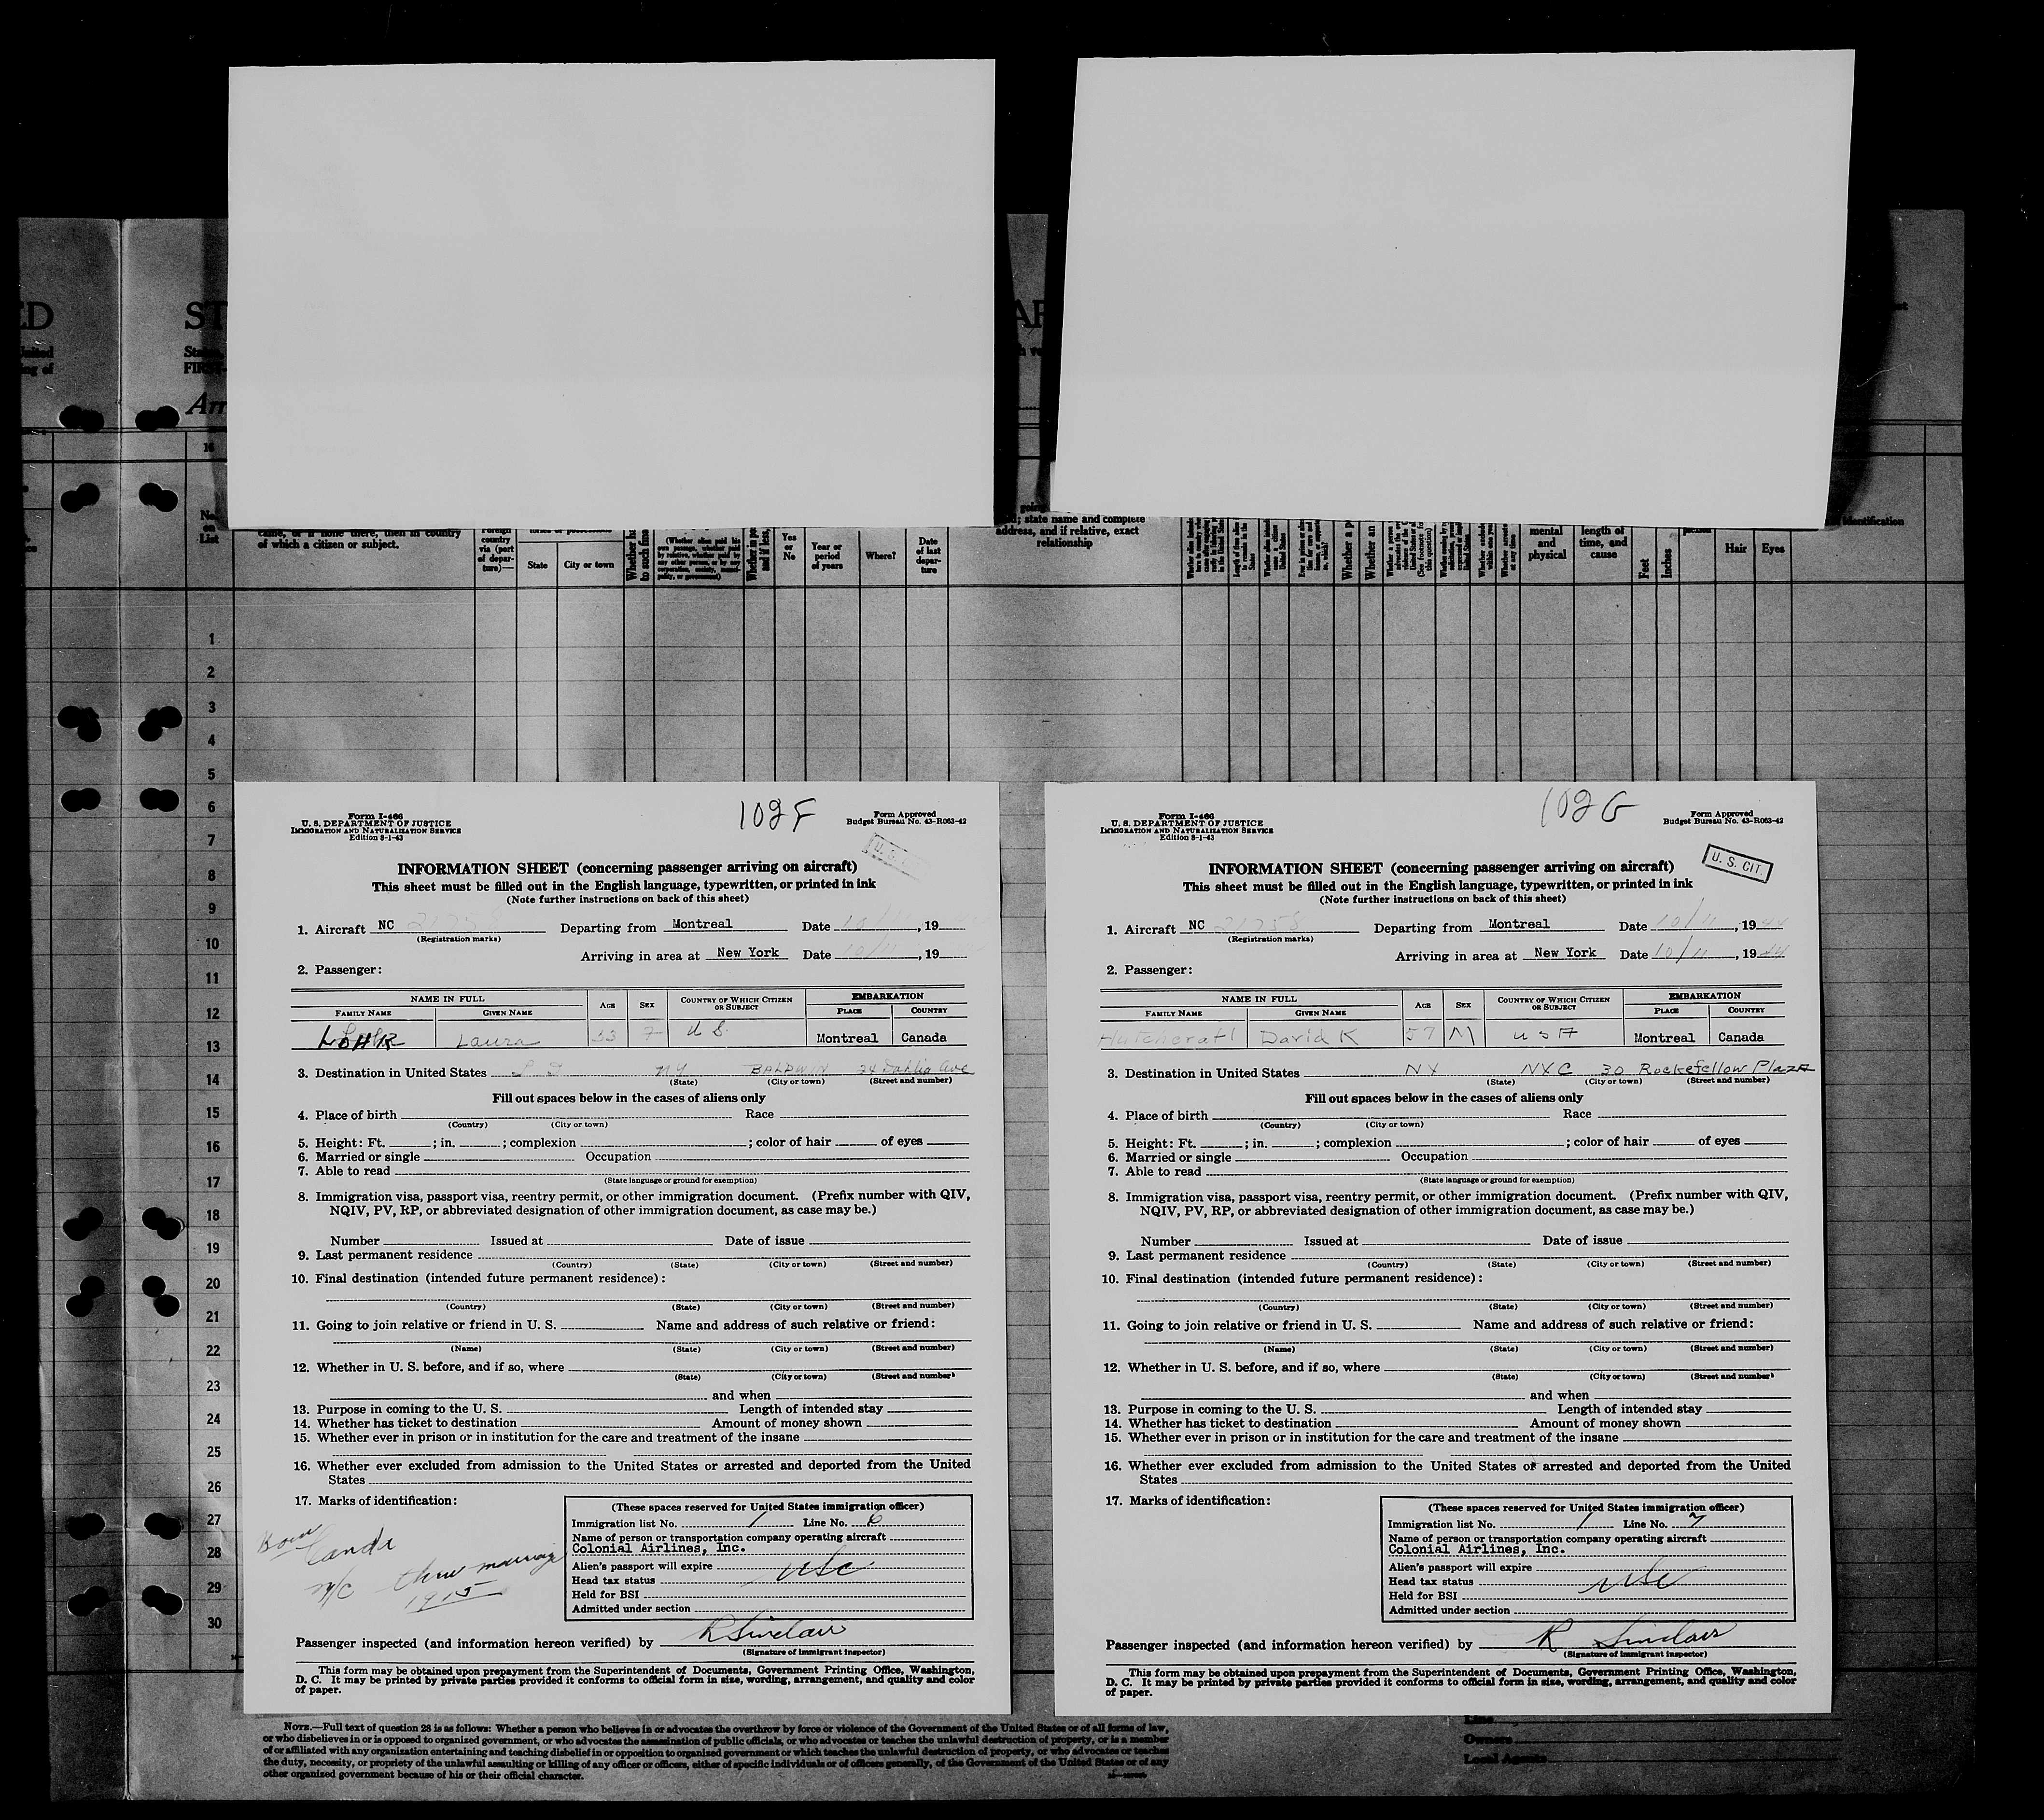 ED
ST
AR
FIRST-
Arr
16
No.
on
List
came, or if none there, then in country
of which a citizen or subject.
Foreign
country
via (port
of depar-
ture)—
State
City or town
(Whether alien paid his
own passage, whether paid
by relative, whether paid by
any other person, or by any
corporation, society, munici-
pality, or government)
Yes
or
No
Year or
period
of years
Where?
Date
of last
depar-
ture
state name and complete
address, and if relative, exact
relationship
Whether a p
Whether an
mental
and
physical
length of
time, and
cause
Feet
Inches
Hair
Eyes
identification
1
2
3
4
5
6
7
8
9
10
11
12
13
14
15
16
17
18
19
20
21
22
23
24
25
26
27
28
29
30
102F
Form I-466
U. S. DEPARTMENT OF JUSTICE
IMMIGRATION AND NATURALIZATION SERVICE
Edition 8-1-43
Form Approved
Budget Bureau No. 43-R063-42
INFORMATION SHEET (concerning passenger arriving on aircraft)
This sheet must be filled out in the English language, typewritten, or printed in ink
(Note further instructions on back of this sheet)
1. Aircraft NC 21758 Departing from Montreal Date 10/11, 19
(Registration marks)
Arriving in area at New York Date 10/11, 19
2. Passenger:
NAME IN FULL AGE SEX COUNTRY OF WHICH CITIZEN OR SUBJECT EMBARKATION
FAMILY NAME GIVEN NAME PLACE COUNTRY
LOHR Laura 53 F U S. Montreal Canada
3. Destination in United States NY BALDWIN 24 Dahlia Ave
(State) (City or town) (Street and number)
Fill out spaces below in the cases of aliens only
4. Place of birth Race
(Country) (City or town)
5. Height: Ft. ; in. ; complexion ; color of hair of eyes
6. Married or single Occupation
7. Able to read
(State language or ground for exemption)
8. Immigration visa, passport visa, reentry permit, or other immigration document. (Prefix number with QIV,
NQIV, PV, RP, or abbreviated designation of other immigration document, as case may be.)
Number Issued at Date of issue
9. Last permanent residence
(Country) (State) (City or town) (Street and number)
10. Final destination (intended future permanent residence):
(Country) (State) (City or town) (Street and number)
11. Going to join relative or friend in U. S. Name and address of such relative or friend:
(Name) (State) (City or town) (Street and number)
12. Whether in U. S. before, and if so, where
(State) (City or town) (Street and number)
and when
13. Purpose in coming to the U. S. Length of intended stay
14. Whether has ticket to destination Amount of money shown
15. Whether ever in prison or in institution for the care and treatment of the insane
16. Whether ever excluded from admission to the United States or arrested and deported from the United
States
17. Marks of identification:
Born
Canada
N/C thru marriage
1915
(These spaces reserved for United States immigration officer)
Immigration list No. 1 Line No. 6
Name of person or transportation company operating aircraft
Colonial Airlines, Inc.
Alien's passport will expire
Head tax status USC
Held for BSI
Admitted under section
Passenger inspected (and information hereon verified) by R Sinclair
(Signature of immigrant inspector)
This form may be obtained upon prepayment from the Superintendent of Documents, Government Printing Office, Washington,
D. C. It may be printed by private parties provided it conforms to official form in size, wording, arrangement, and quality and color
of paper.
102 G
Form I-466
U. S. DEPARTMENT OF JUSTICE
IMMIGRATION AND NATURALIZATION SERVICE
Edition 8-1-43
Form Approved
Budget Bureau No. 43-R063-42
U. S. CIT.
INFORMATION SHEET (concerning passenger arriving on aircraft)
This sheet must be filled out in the English language, typewritten, or printed in ink
(Note further instructions on back of this sheet)
1. Aircraft NC 21758 Departing from Montreal Date 10/11, 1944
(Registration marks)
Arriving in area at New York Date 10/11, 1944
2. Passenger:
NAME IN FULL AGE SEX COUNTRY OF WHICH CITIZEN OR SUBJECT EMBARKATION
FAMILY NAME GIVEN NAME PLACE COUNTRY
Hutchcraft David K 57 M USA Montreal Canada
3. Destination in United States NY NYC 30 Rockefellow Plaza
(State) (City or town) (Street and number)
Fill out spaces below in the cases of aliens only
4. Place of birth Race
(Country) (City or town)
5. Height: Ft. ; in. ; complexion ; color of hair of eyes
6. Married or single Occupation
7. Able to read
(State language or ground for exemption)
8. Immigration visa, passport visa, reentry permit, or other immigration document. (Prefix number with QIV,
NQIV, PV, RP, or abbreviated designation of other immigration document, as case may be.)
Number Issued at Date of issue
9. Last permanent residence
(Country) (State) (City or town) (Street and number)
10. Final destination (intended future permanent residence):
(Country) (State) (City or town) (Street and number)
11. Going to join relative or friend in U. S. Name and address of such relative or friend:
(Name) (State) (City or town) (Street and number)
12. Whether in U. S. before, and if so, where
(State) (City or town) (Street and number)
and when
13. Purpose in coming to the U. S. Length of intended stay
14. Whether has ticket to destination Amount of money shown
15. Whether ever in prison or in institution for the care and treatment of the insane
16. Whether ever excluded from admission to the United States or arrested and deported from the United
States
17. Marks of identification:
(These spaces reserved for United States immigration officer)
Immigration list No. 1 Line No. 7
Name of person or transportation company operating aircraft
Colonial Airlines, Inc.
Alien's passport will expire
Head tax status USC
Held for BSI
Admitted under section
Passenger inspected (and information hereon verified) by R Sinclair
(Signature of immigrant inspector)
This form may be obtained upon prepayment from the Superintendent of Documents, Government Printing Office, Washington,
D. C. It may be printed by private parties provided it conforms to official form in size, wording, arrangement, and quality and color
of paper.
NOTE.—Full text of question 28 is as follows: Whether a person who believes in or advocates the overthrow by force or violence of the Government of the United States or of all forms of law,
or who disbelieves in or is opposed to organized government, or who advocates the assassination of public officials, or who advocates or teaches the unlawful destruction of property, or is a member
of or affiliated with any organization entertaining and teaching disbelief in or opposition to organized government or which teaches the unlawful destruction of property, or who advocates or teaches
the duty, necessity, or propriety of the unlawful assaulting or killing of any officer or officers, either of specific individuals or of officers generally, of the Government of the United States or of any
other organized government because of his or their official character.
Line
Owners
Local Agents